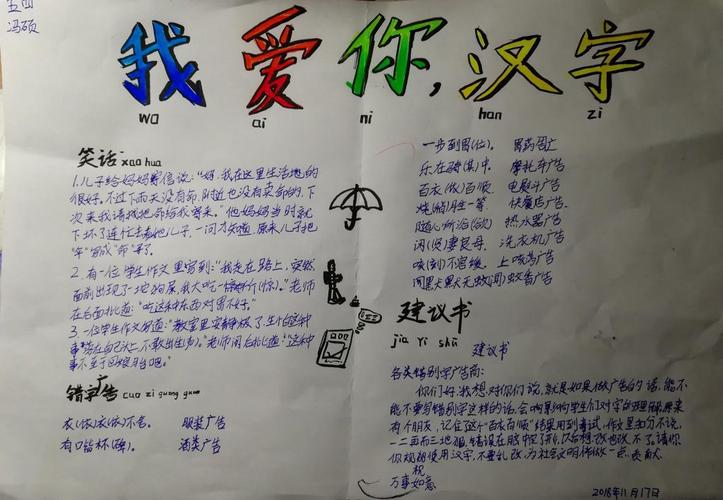 五四
冯硕
我爱你,汉字
wo ai ni han zi
笑话 xao hua
1.儿子给妈妈寄信说:“妈,我在这里生活地的
很好,不过下雨天没有命,附近也没有卖命的,下
次来我请我把命给我带来。”他妈妈当时就
下坏了连忙去看他儿子,一问才知道,原来儿子把
“伞”写成“命”来了。
2.有一位学生作文里写到:“我走在路上,突然
面前出现了一坨的屎,我大吃一
(惊)。”老师
在后面批道:“吃这种东西对胃不好。”
3.一位学生作文写道:“教室里安静极了,生怕这种
”老师阅后批道:“这种
事不至于回娘家当吧。”
错字广告 cuo zi guang guao
衣(依)衣(依)不舍。 服装广告
有口皆杯(碑)。 酒类广告
一步到胃(位)。 胃药广告
乐在骑(其)中。 摩托车广告
百衣(依)百顺。 电熨斗广告
烧(稍)胜一筹 快餐店广告
随心所浴(欲) 热水器广告
闲(贤)妻良母。 洗衣机广告
咳(刻)不容缓。 止咳药广告
闻黑犬黑犬无蚊(闻)蚊香广告
建议书
jia Yi shū
建议书
各类错别字广告商:
你们好,我想对你们说,就是如果做广告的话,能不
能不要写错别字这样的话,会响影响学生们对字的理解,原来
有个朋友,记住这个“百衣百顺”结果用到考试,作文里扣分不说,
一二再而三地犯,错误在脑中记了开,以后想改也改不了,请你
你规规使用汉字,不要乱改,为社会文明做一点贡献。
祝
万事如意
2018年11月17日